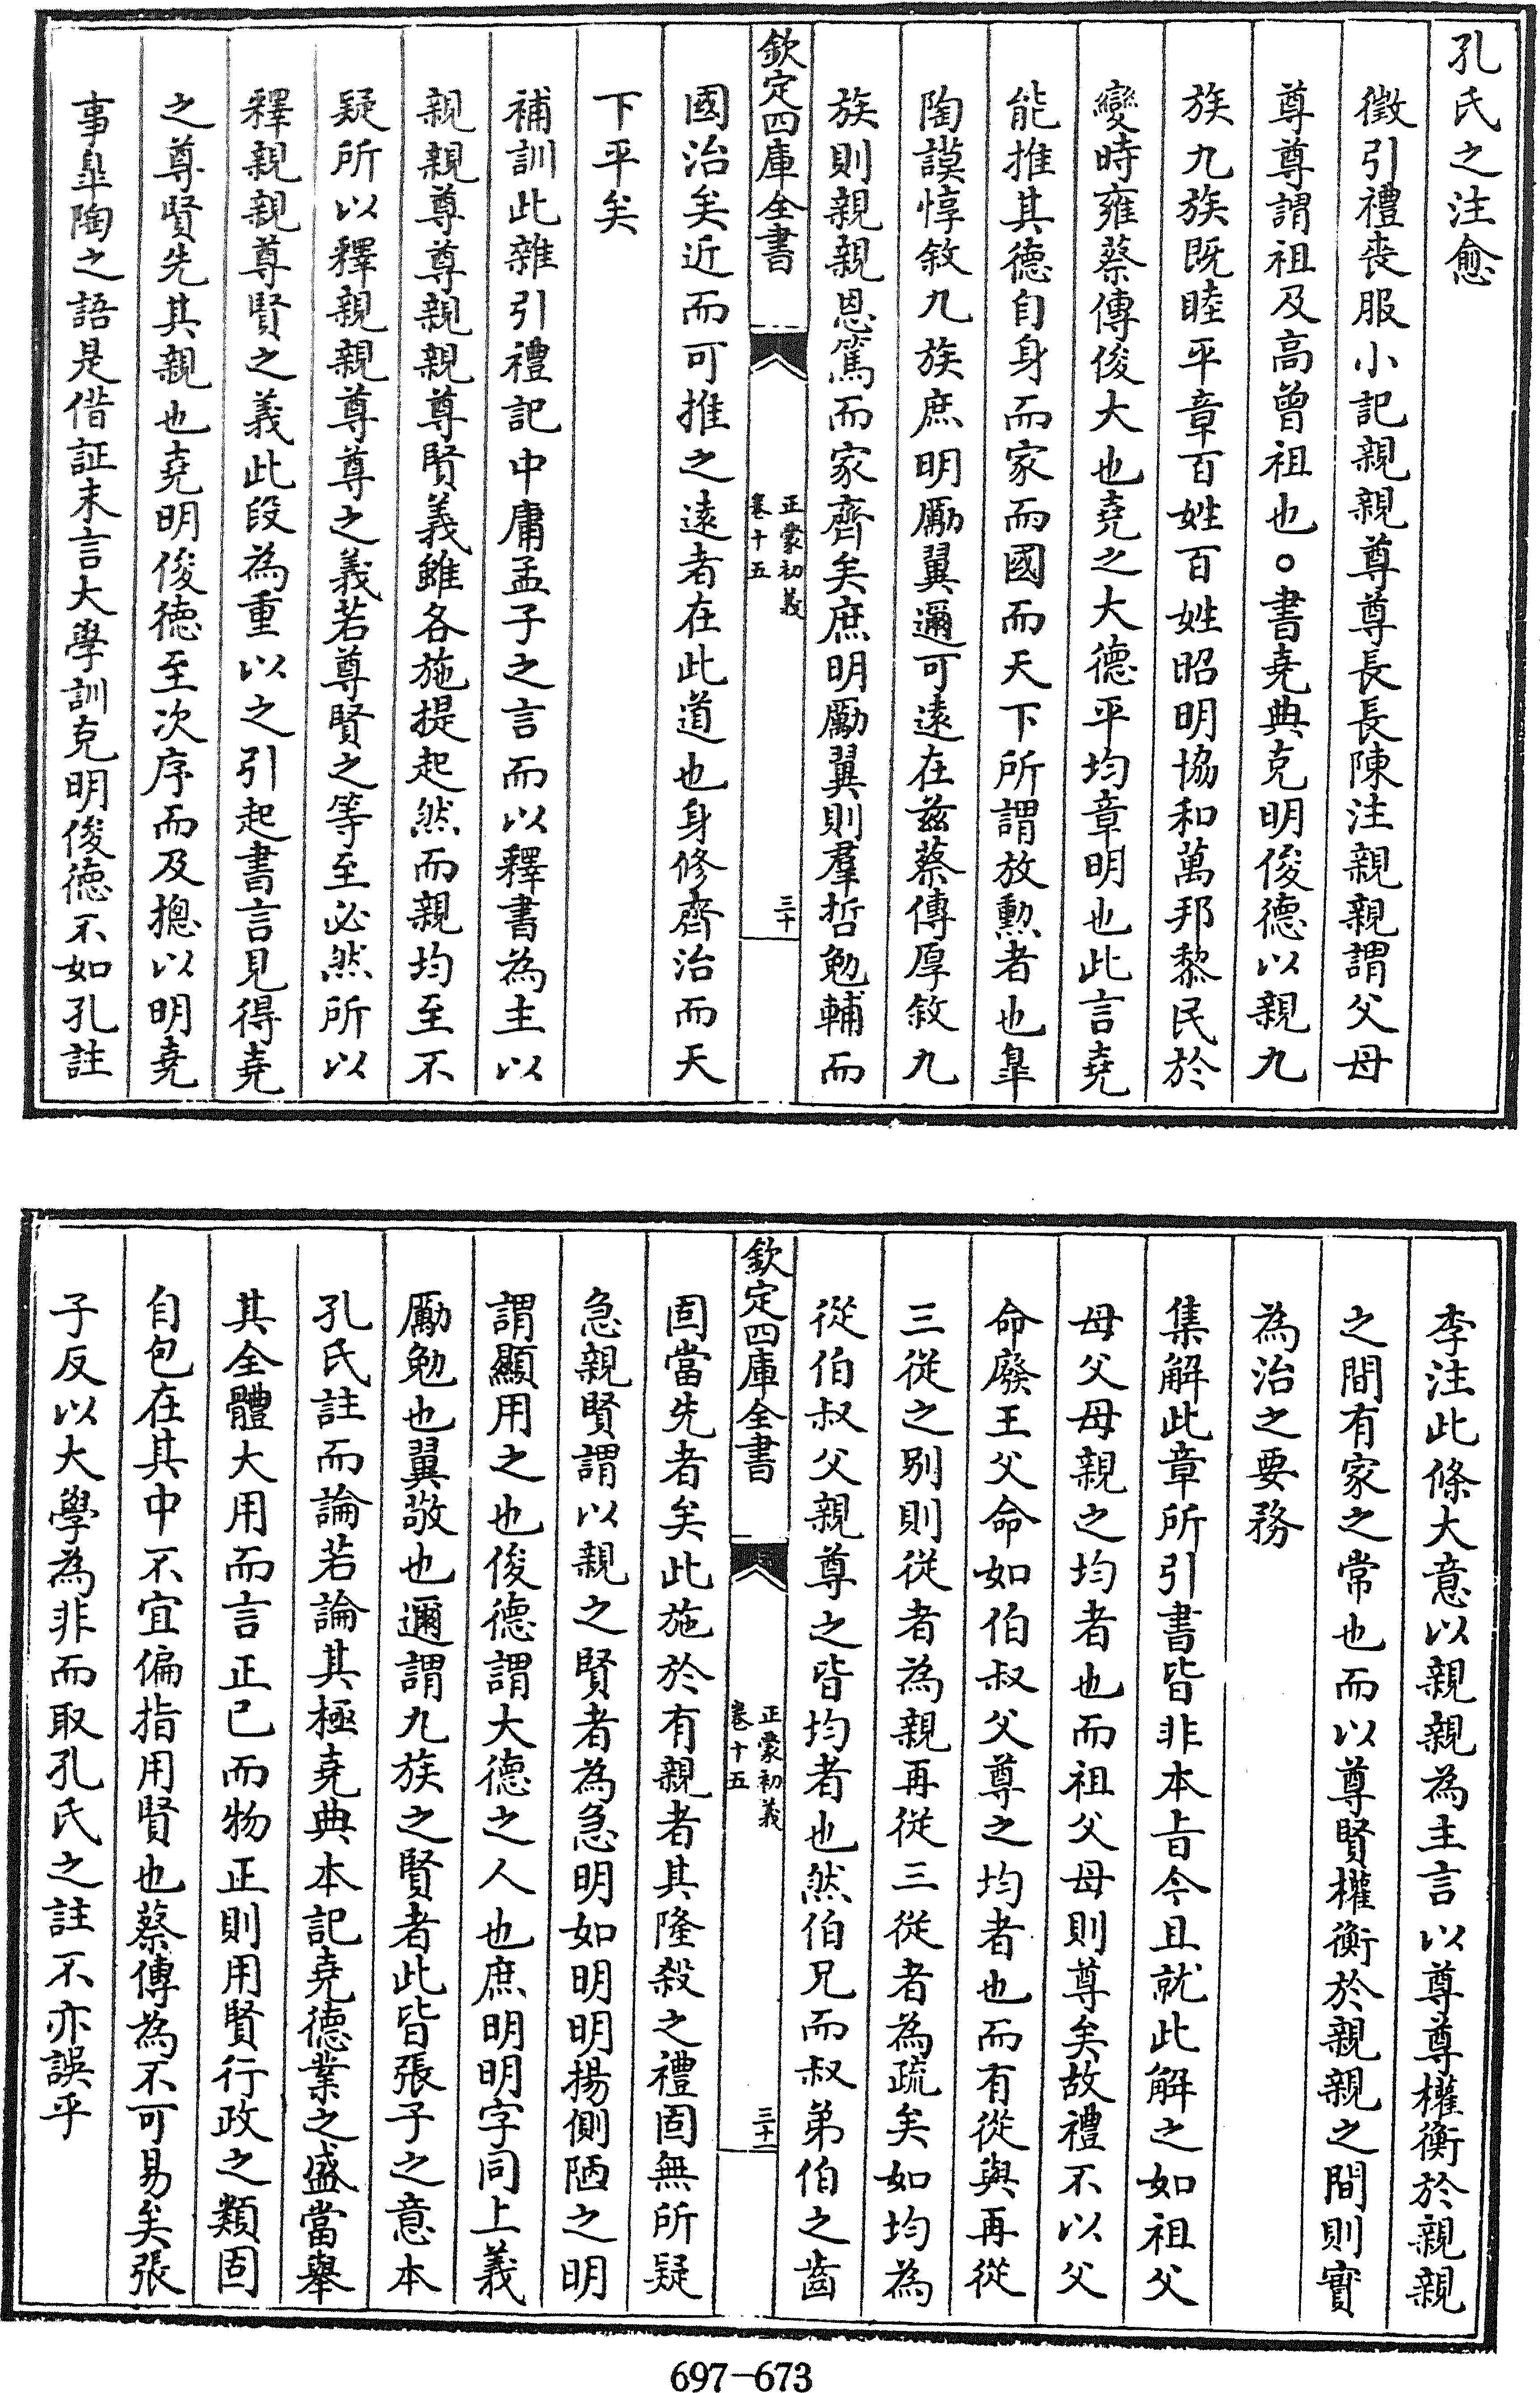 孔氏之注愈
徵引禮喪服小記親親尊尊長長陳注親親謂父母
尊尊謂祖及高曾祖也○書堯典克明俊德以親九
族九族既睦平章百姓百姓昭明協和萬邦黎民於
變時雍蔡傳俊大也堯之大德平均章明也此言堯
能推其德自身而家而國而天下所謂放勲者也臯
陶謨惇敘九族庶明勵翼邇可遠在兹蔡傳厚敘九
族則親親恩篤而家齊矣庶明勵翼則羣哲勉輔而
欽定四庫全書
正蒙初義
卷十五
三十
國治矣近而可推之遠者在此道也身修齊治而天
下平矣
補訓此雜引禮記中庸孟子之言而以釋書為主以
親親尊尊親親尊賢義雖各施提起然而親均至不
疑所以釋親親尊尊之義若尊賢之等至必然所以
釋親親尊賢之義此段為重以之引起書言見得堯
之尊賢先其親也堯明俊德至次序而及摠以明堯
事臯陶之語是借証末言大學訓克明俊德不如孔註
李注此條大意以親親為主言以尊尊權衡於親親
之間有家之常也而以尊賢權衡於親親之間則實
為治之要務
集解此章所引書皆非本旨今且就此解之如祖父
母父母親之均者也而祖父母則尊矣故禮不以父
命廢王父命如伯叔父尊之均者也而有從與再從
三從之別則從者為親再從三從者為疏矣如均為
從伯叔父親尊之皆均者也然伯兄而叔弟伯之齒
欽定四庫全書
正蒙初義
卷十五
三十一
固當先者矣此施於有親者其隆殺之禮固無所疑
急親賢謂以親之賢者為急明如明明揚側陋之明
謂顯用之也俊德謂大德之人也庶明明字同上義
勵勉也翼敬也邇謂九族之賢者此皆張子之意本
孔氏註而論若論其極堯典本記堯德業之盛當舉
其全體大用而言正已而物正則用賢行政之類固
自包在其中不宜偏指用賢也蔡傳為不可易矣張
子反以大學為非而取孔氏之註不亦誤乎
697-673